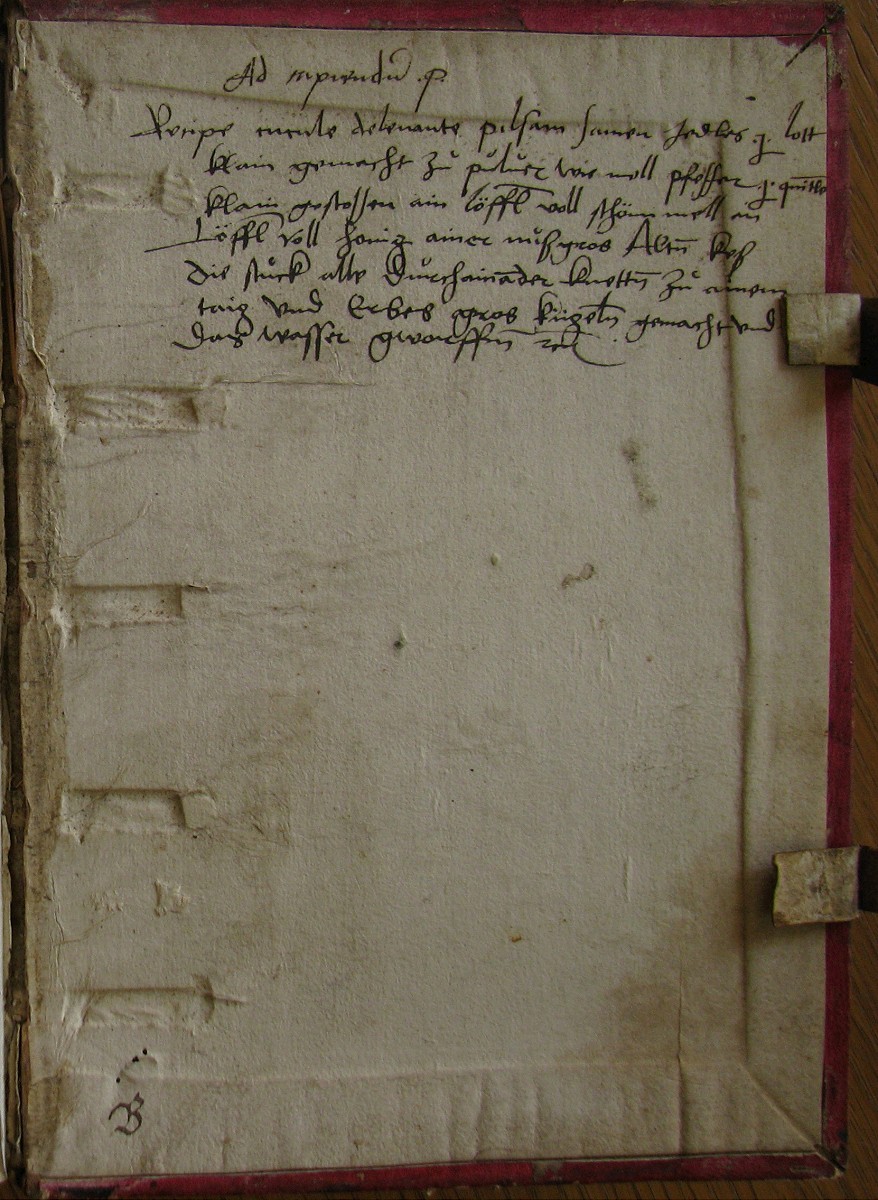 Ad rapiendū .p.
Recipe cucule delevante pilsam samen Jedles .j. lott
klain gemacht zů půluer wie mell pfeffer .j. quītle
klain gestossen ain löffl voll schön mell ain
Löffl voll honig ainer nůßgros Altñ keß
die stuck alle durchainander knettñ zů ainem
taig vnd Erbes gros kügelñ gemacht vnd
Das wasser gworffñ
B